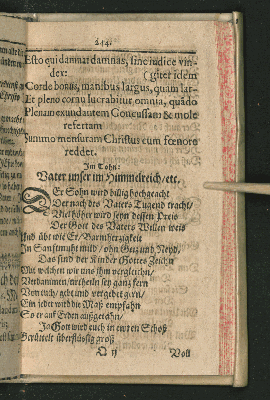 244.
Esto qui damnat damnas, sine iudice vin-
dex: (giter idem
Corde bonus, manibus largus, quam lar-
Et pleno cornu lucrabitur omnia, quãdo
Plenam exundautem Concussam & mole
refertam
Summo mensuram Christus cum fœnore
reddet.
Im Tohn:
Vater unser im Himmelreich/etc.
DEr Sohn wird billig hochgeacht
Der nach des Vaters Tugend tracht/
Viel höher wird seyn dessen Preis
Der Gott des Vaters Willen weis
Und übt wie Er/Barmhertzigkeit
In Sanftmuht mild/ohn Geiz und Neyd/
Das sind der Kinder Gottes Zeichn
Mit welchen wir uns ihm vergleichn/
Verdammen/urtheiln sey gantz fern
Von euch/gebt und vergebet gern/
Ein jeder wird die Maß empfahn
So er auf Erden außgetahn/
Ja Gott wird euch in euren Schoß
Gerüttelt überflüssig groß
Q ij Voll